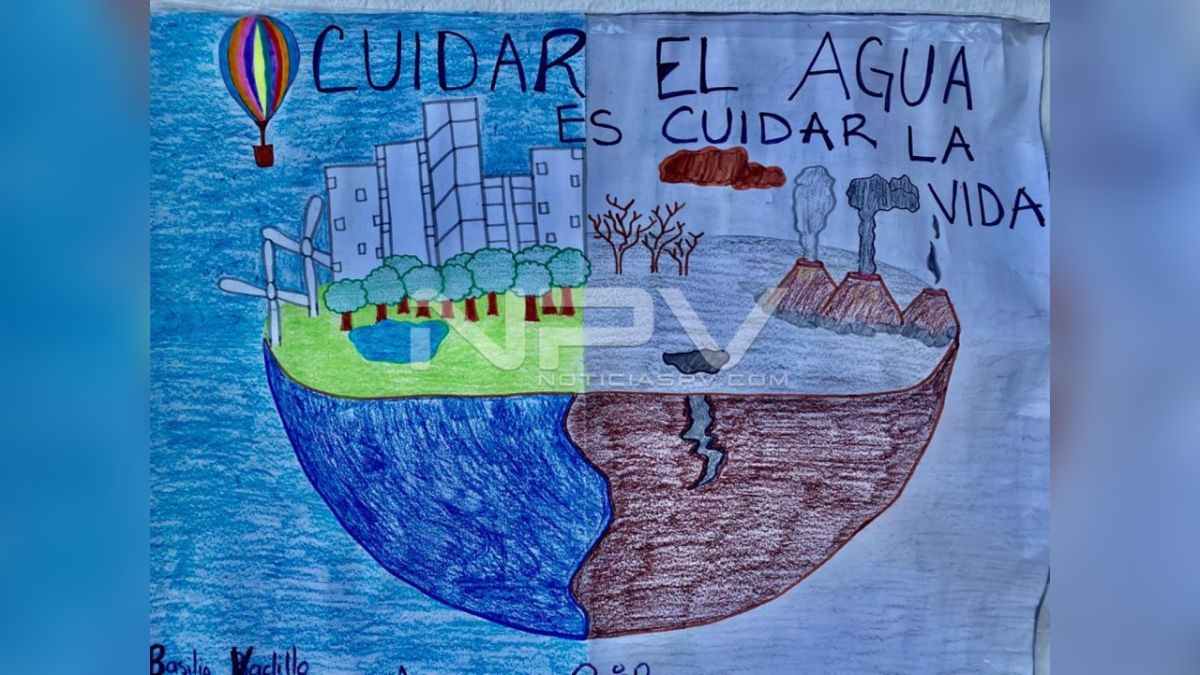 CUIDAR EL AGUA
ES CUIDAR LA
VIDA
NPV
NOTICIASPV.COM
Basilio Vadillo